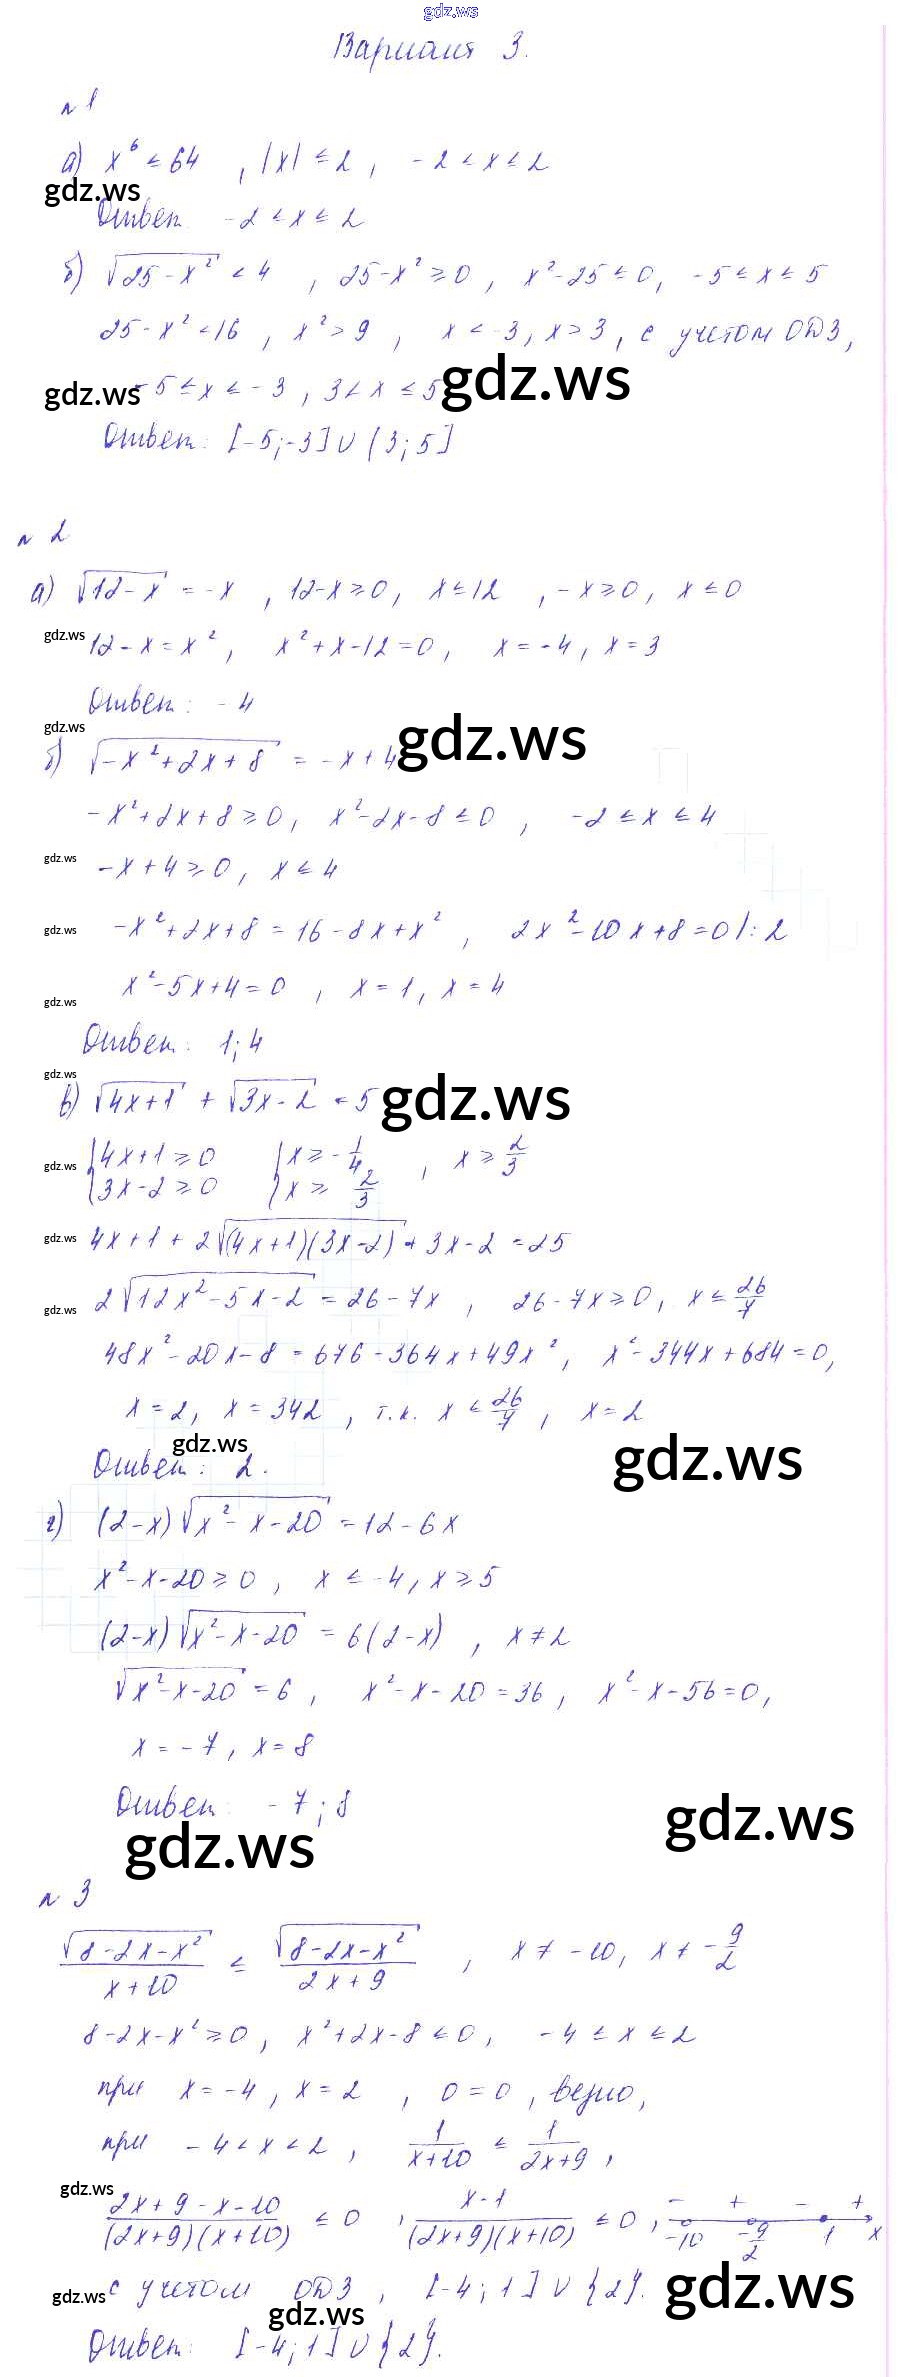 gdz.ws
Вариант 3.
n 1
а) x⁶ ≤ 64 , |x| ≤ 2 , -2 ≤ x ≤ 2
gdz.ws
Ответ: -2 ≤ x ≤ 2
б) √(25-x²) < 4 , 25-x² ≥ 0 , x²-25 ≤ 0, -5 ≤ x ≤ 5
25-x² < 16 , x² > 9 , x < -3, x > 3 , с учетом ОДЗ,
gdz.ws -5 ≤ x ≤ -3 , 3 < x ≤ 5 gdz.ws
Ответ: [-5;-3] ∪ (3;5]
n 2
а) √(12-x) = -x , 12-x ≥ 0, x ≤ 12 , -x ≥ 0, x ≤ 0
gdz.ws 12-x = x² , x²+x-12 = 0 , x = -4, x = 3
Ответ: -4
gdz.ws
б) √(-x²+2x+8) = -x+4 gdz.ws
-x²+2x+8 ≥ 0, x²-2x-8 ≤ 0 , -2 ≤ x ≤ 4
gdz.ws -x+4 ≥ 0, x ≤ 4
gdz.ws -x²+2x+8 = 16-8x+x² , 2x²-10x+8 = 0 |:2
gdz.ws x²-5x+4 = 0 , x = 1, x = 4
Ответ: 1; 4
gdz.ws
в) √(4x+1) + √(3x-2) = 5 gdz.ws
gdz.ws { 4x+1 ≥ 0 { x ≥ -1/4 , x ≥ 2/3
{ 3x-2 ≥ 0 { x ≥ 2/3
gdz.ws 4x+1+2√((4x+1)(3x-2)) + 3x-2 = 25
gdz.ws 2√(12x²-5x-2) = 26-7x , 26-7x ≥ 0, x ≤ 26/7
48x²-20x-8 = 676-364x+49x² , x²-344x+684 = 0,
x = 2, x = 342 , т.к. x ≤ 26/7 , x = 2
gdz.ws gdz.ws
Ответ: 2.
г) (2-x)√(x²-x-20) = 12-6x
x²-x-20 ≥ 0 , x ≤ -4, x ≥ 5
(2-x)√(x²-x-20) = 6(2-x) , x ≠ 2
√(x²-x-20) = 6 , x²-x-20 = 36, x²-x-56 = 0,
x = -7, x = 8
Ответ: -7; 8
gdz.ws gdz.ws
n 3
√(8-2x-x²)/(x+10) ≤ √(8-2x-x²)/(2x+9) , x ≠ -10, x ≠ -9/2
8-2x-x² ≥ 0, x²+2x-8 ≤ 0, -4 ≤ x ≤ 2
при x = -4, x = 2 , 0 = 0 , верно,
при -4 < x < 2 , 1/(x+10) ≤ 1/(2x+9) ,
gdz.ws
(2x+9-x-10)/((2x+9)(x+10)) ≤ 0 , (x-1)/((2x+9)(x+10)) ≤ 0 , - + - + -10 -9/2 1 x
gdz.ws с учетом ОДЗ , [-4;1] ∪ {2}. gdz.ws
gdz.ws
Ответ: [-4;1] ∪ {2}.